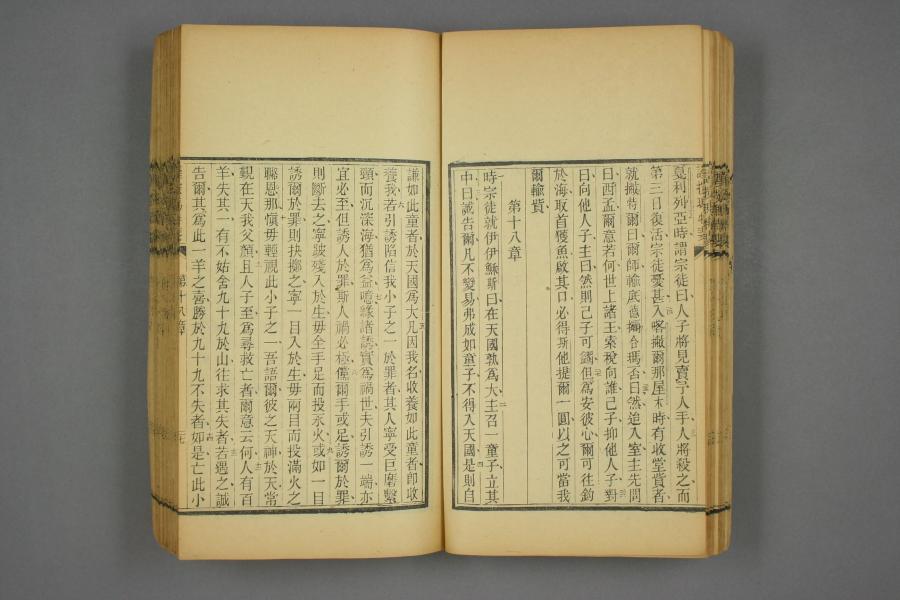 莫利列亞時謂宗徒曰人子將見賣于人手人將殺之而
第三日復活宗徒憂甚入喀撇爾那屋末時有收堂貲者
就撇特爾曰爾師輸底德爾合瑪否曰然迨入室主先問
曰西孟爾意若何世上諸王索稅向誰己子抑他人子對
曰向他人子主曰然則己子可蠲但為安彼心爾可往釣
於海取首獲魚啟其口必得斯他提爾一圓以之可當我
爾輸貲
第十八章
時宗徒就伊伊穌斯曰在天國孰為大主召一童子立其
中曰誠告爾凡不變易弗成如童子不得入天國是則自
謙如此童者於天國為大凡因我名收養如此童者即收
養我若引誘陷信我小子之一於罪者其人寧受巨磨繫
頸而沉深海猶為益噫緣諸誘實為禍世夫引誘一端亦
宜必至但誘人於罪斯人禍必極儻爾手或足誘爾於罪
則斷去之寧跛殘入於生毋全手足而投永火或如一目
誘爾於罪則抉擲之寧一目入於生毋兩目而投滿火之
聯恩那慎毋輕視此小子之一吾語爾彼之天神於天常
覲在天我父顏且人子至為尋救亡者爾意云何人有百
羊失其一有不姑舍九十九於山往求其失者若遇之誠
告爾其為此一羊之喜勝於九十九不失者如是亡此小
第十八章